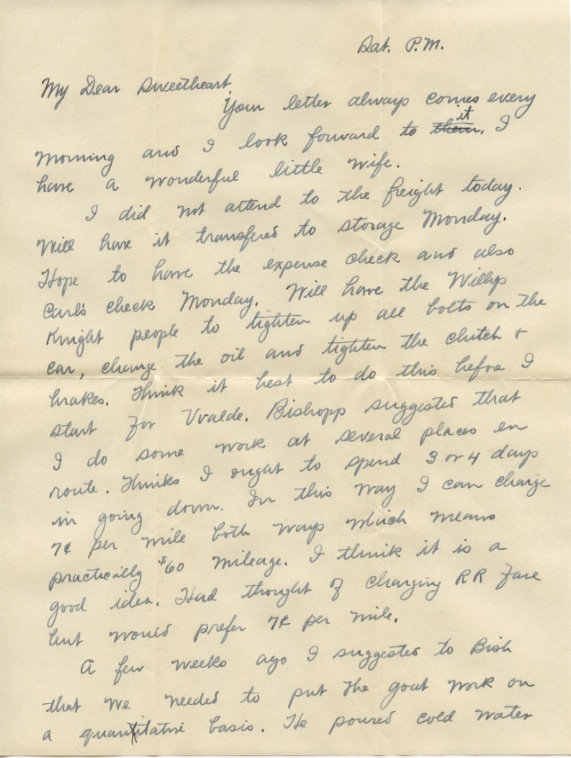 Sat. P.M.
My Dear Sweetheart,
Your letter always comes every
morning and I look forward to them. it I
have a wonderful little wife.
I did not attend to the freight today.
Will have it transfered to storage Monday.
Hope to have the expense check and also
Carl's check Monday. Will have the Willys
Knight people to tighten up all bolts on the
car, change the oil and tighten the clutch &
brakes. Think it best to do this before I
start for Uvalde. Bishopp suggested that
I do some work at several places en
route. Thinks I ought to spend 3 or 4 days
in going down. In this way I can charge
7¢ per mile both ways which means
practically $60 mileage. I think it is a
good idea. Had thought of charging RR fare
but would prefer 7¢ per mile.
A few weeks ago I suggested to Bish
that we needed to put the goat work on
a quantitative basis. He poured cold water